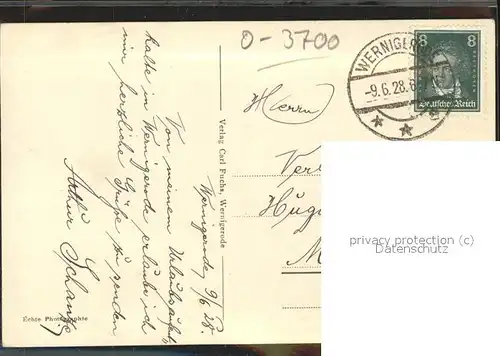 0-3700
WERNIGERODE
-9.6.28.6
8 8
Deutsches Reich
Herrn
Hug
M
privacy protection (c)
Datenschutz
Verlag Carl Fuchs, Wernigerode
Wernigerode, 9/6 28.
Von meinem Urlaubsaufent-
halte in Wernigerode erlaube ich
mir herzliche Grüße zu senden
Arthur Schanz
Echte Photographie